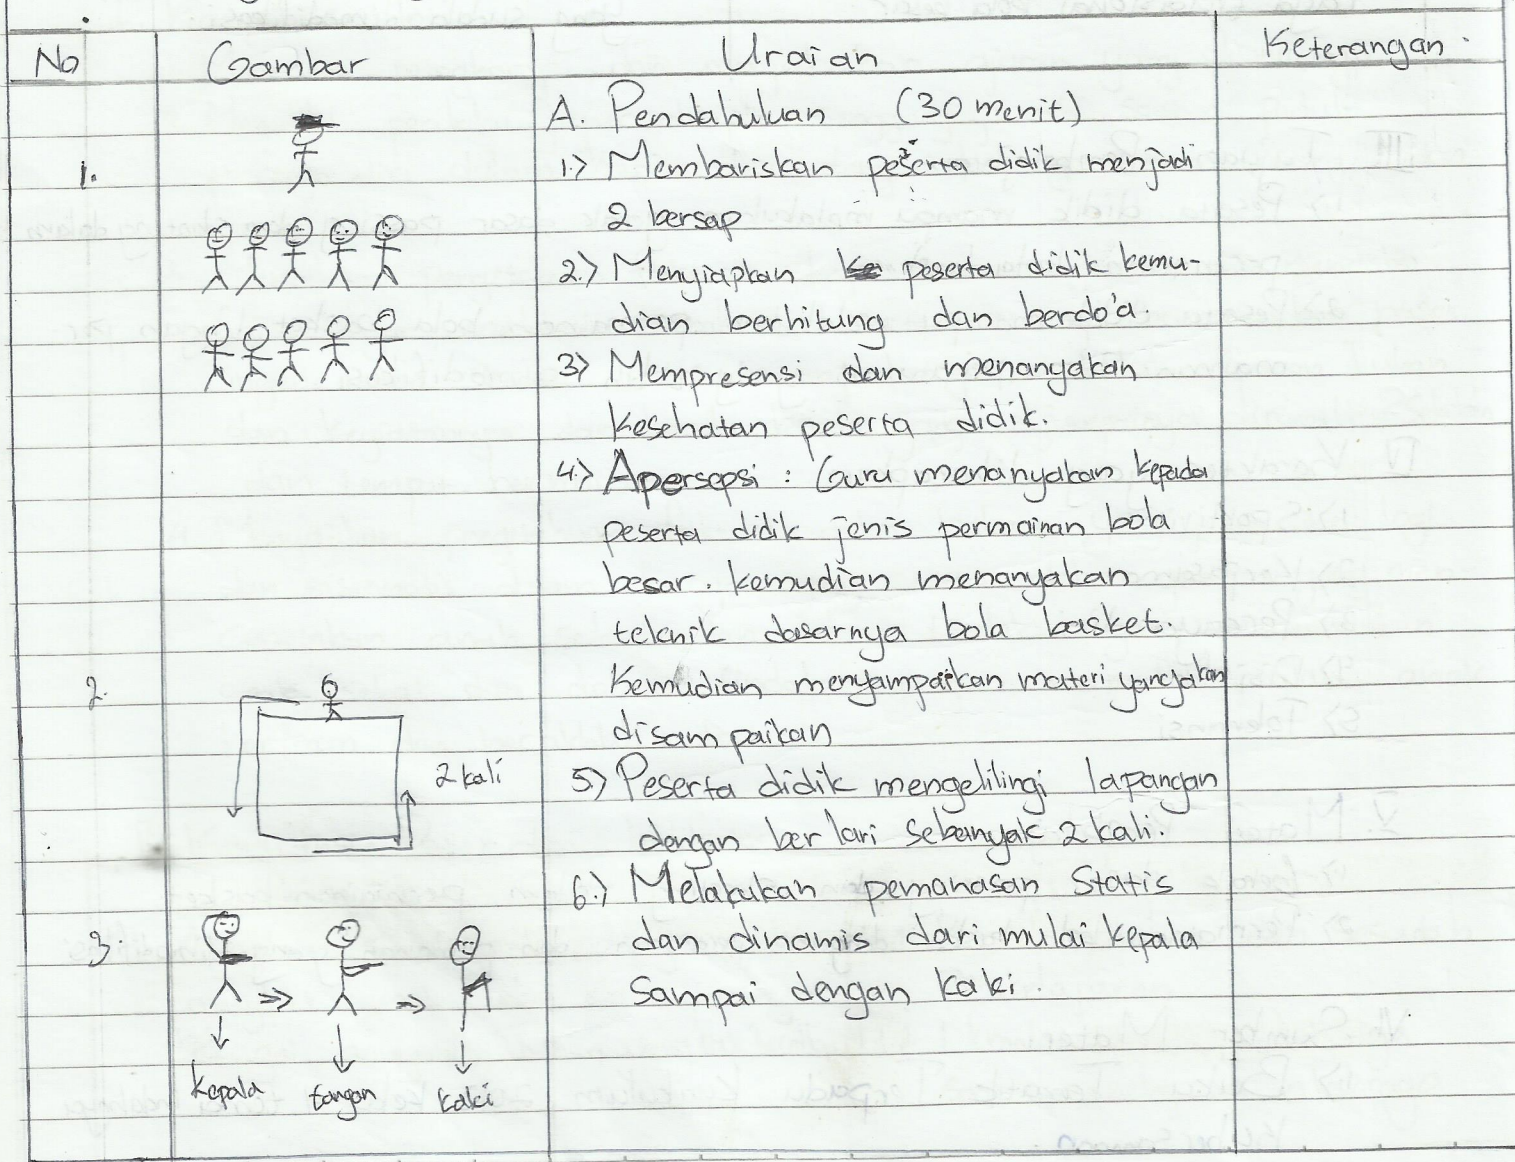 No Gambar Uraian Keterangan.
A. Pendahuluan (30 menit)
1. 1.) Membariskan peserta didik menjadi
2 bersap
2.) Menyiapkan peserta didik kemu-
dian berhitung dan berdo'a.
3) Mempresensi dan menanyakan
kesehatan peserta didik.
4.) Apersepsi : Guru menanyakan kepada
peserta didik jenis permainan bola
besar. kemudian menanyakan
teknik dasarnya bola basket.
2. Kemudian menyampaikan materi yang akan
disampaikan
2 kali
5.) Peserta didik mengelilingi lapangan
dengan berlari sebanyak 2 kali.
6.) Melakukan pemanasan Statis
3. dan dinamis dari mulai kepala
sampai dengan kaki.
kepala tangan kaki